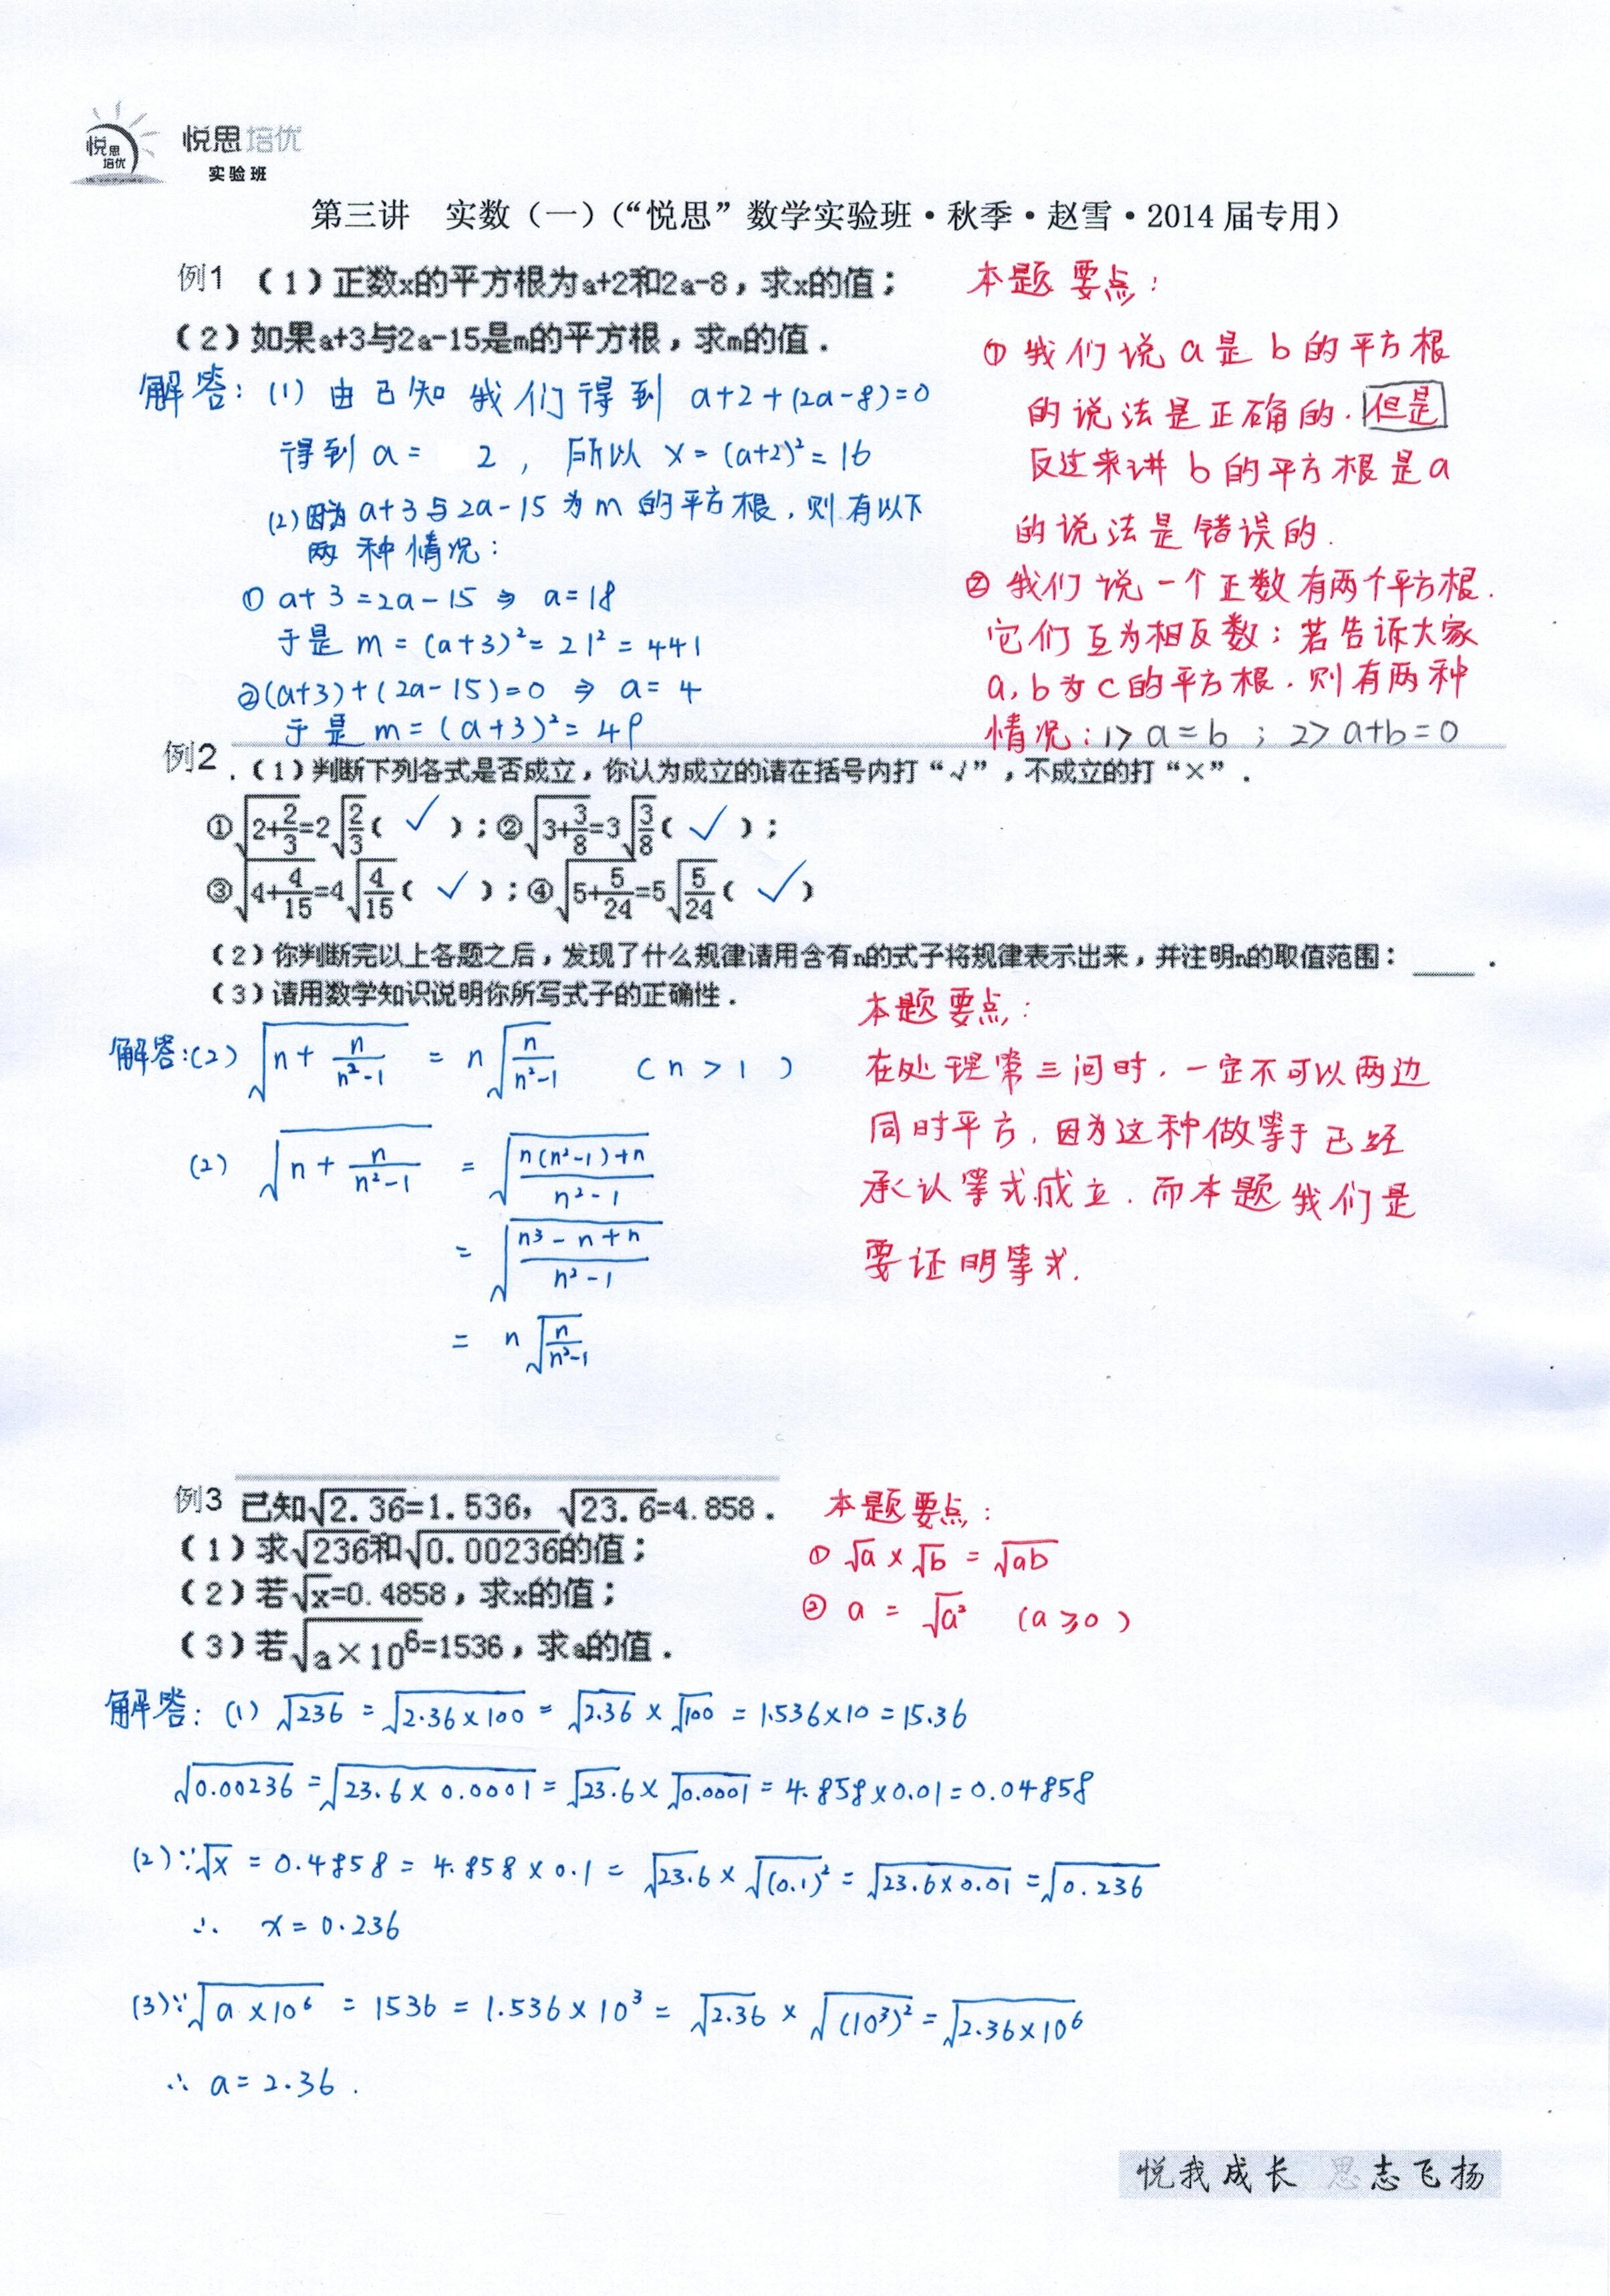 悦思培优
悦思培优
实验班
第三讲 实数（一）（“悦思”数学实验班·秋季·赵雪·2014届专用）
例1 （1）正数x的平方根为a+2和2a-8，求x的值；
（2）如果a+3与2a-15是m的平方根，求m的值．
解答：(1) 由已知我们得到 a+2+(2a-8)=0
得到 a= 2 ， 所以 x=(a+2)²=16
(2)因为 a+3与2a-15 为 m 的平方根，则有以下
两种情况：
① a+3=2a-15 ⇒ a=18
于是 m=(a+3)²=21²=441
②(a+3)+(2a-15)=0 ⇒ a=4
于是 m=(a+3)²=49
本题要点：
① 我们说 a 是 b 的平方根
的说法是正确的．但是
反过来讲 b 的平方根是 a
的说法是错误的．
② 我们说一个正数有两个平方根．
它们互为相反数；若告诉大家
a，b为c的平方根．则有两种
情况：1> a=b ；2> a+b=0
例2 ．（1）判断下列各式是否成立，你认为成立的请在括号内打“√”，不成立的打“×”．
①√(2+2/3)=2√(2/3)（ ✓ ）；②√(3+3/8)=3√(3/8)（ ✓ ）；
③√(4+4/15)=4√(4/15)（ ✓ ）；④√(5+5/24)=5√(5/24)（ ✓ ）
（2）你判断完以上各题之后，发现了什么规律请用含有n的式子将规律表示出来，并注明n的取值范围：____．
（3）请用数学知识说明你所写式子的正确性．
解答：(2) √(n+n/(n²-1)) = n√(n/(n²-1)) （n>1）
(2) √(n+n/(n²-1)) = √((n(n²-1)+n)/(n²-1))
= √((n³-n+n)/(n²-1))
= n√(n/(n²-1))
本题要点：
在处理第三问时．一定不可以两边
同时平方．因为这种做等于已经
承认等式成立．而本题我们是
要证明等式．
例3 已知√2.36=1.536，√23.6=4.858．
（1）求√236和√0.00236的值；
（2）若√x=0.4858，求x的值；
（3）若√(a×10⁶)=1536，求a的值．
本题要点：
① √a×√b=√ab
② a=√a² （a≥0）
解答：(1) √236=√(2.36×100)=√2.36×√100=1.536×10=15.36
√0.00236=√(23.6×0.0001)=√23.6×√0.0001=4.858×0.01=0.04858
(2)∵√x=0.4858=4.858×0.1=√23.6×√(0.1)²=√(23.6×0.01)=√0.236
∴ x=0.236
(3)∵√(a×10⁶)=1536=1.536×10³=√2.36×√(10³)²=√(2.36×10⁶)
∴ a=2.36．
悦我成长 思志飞扬